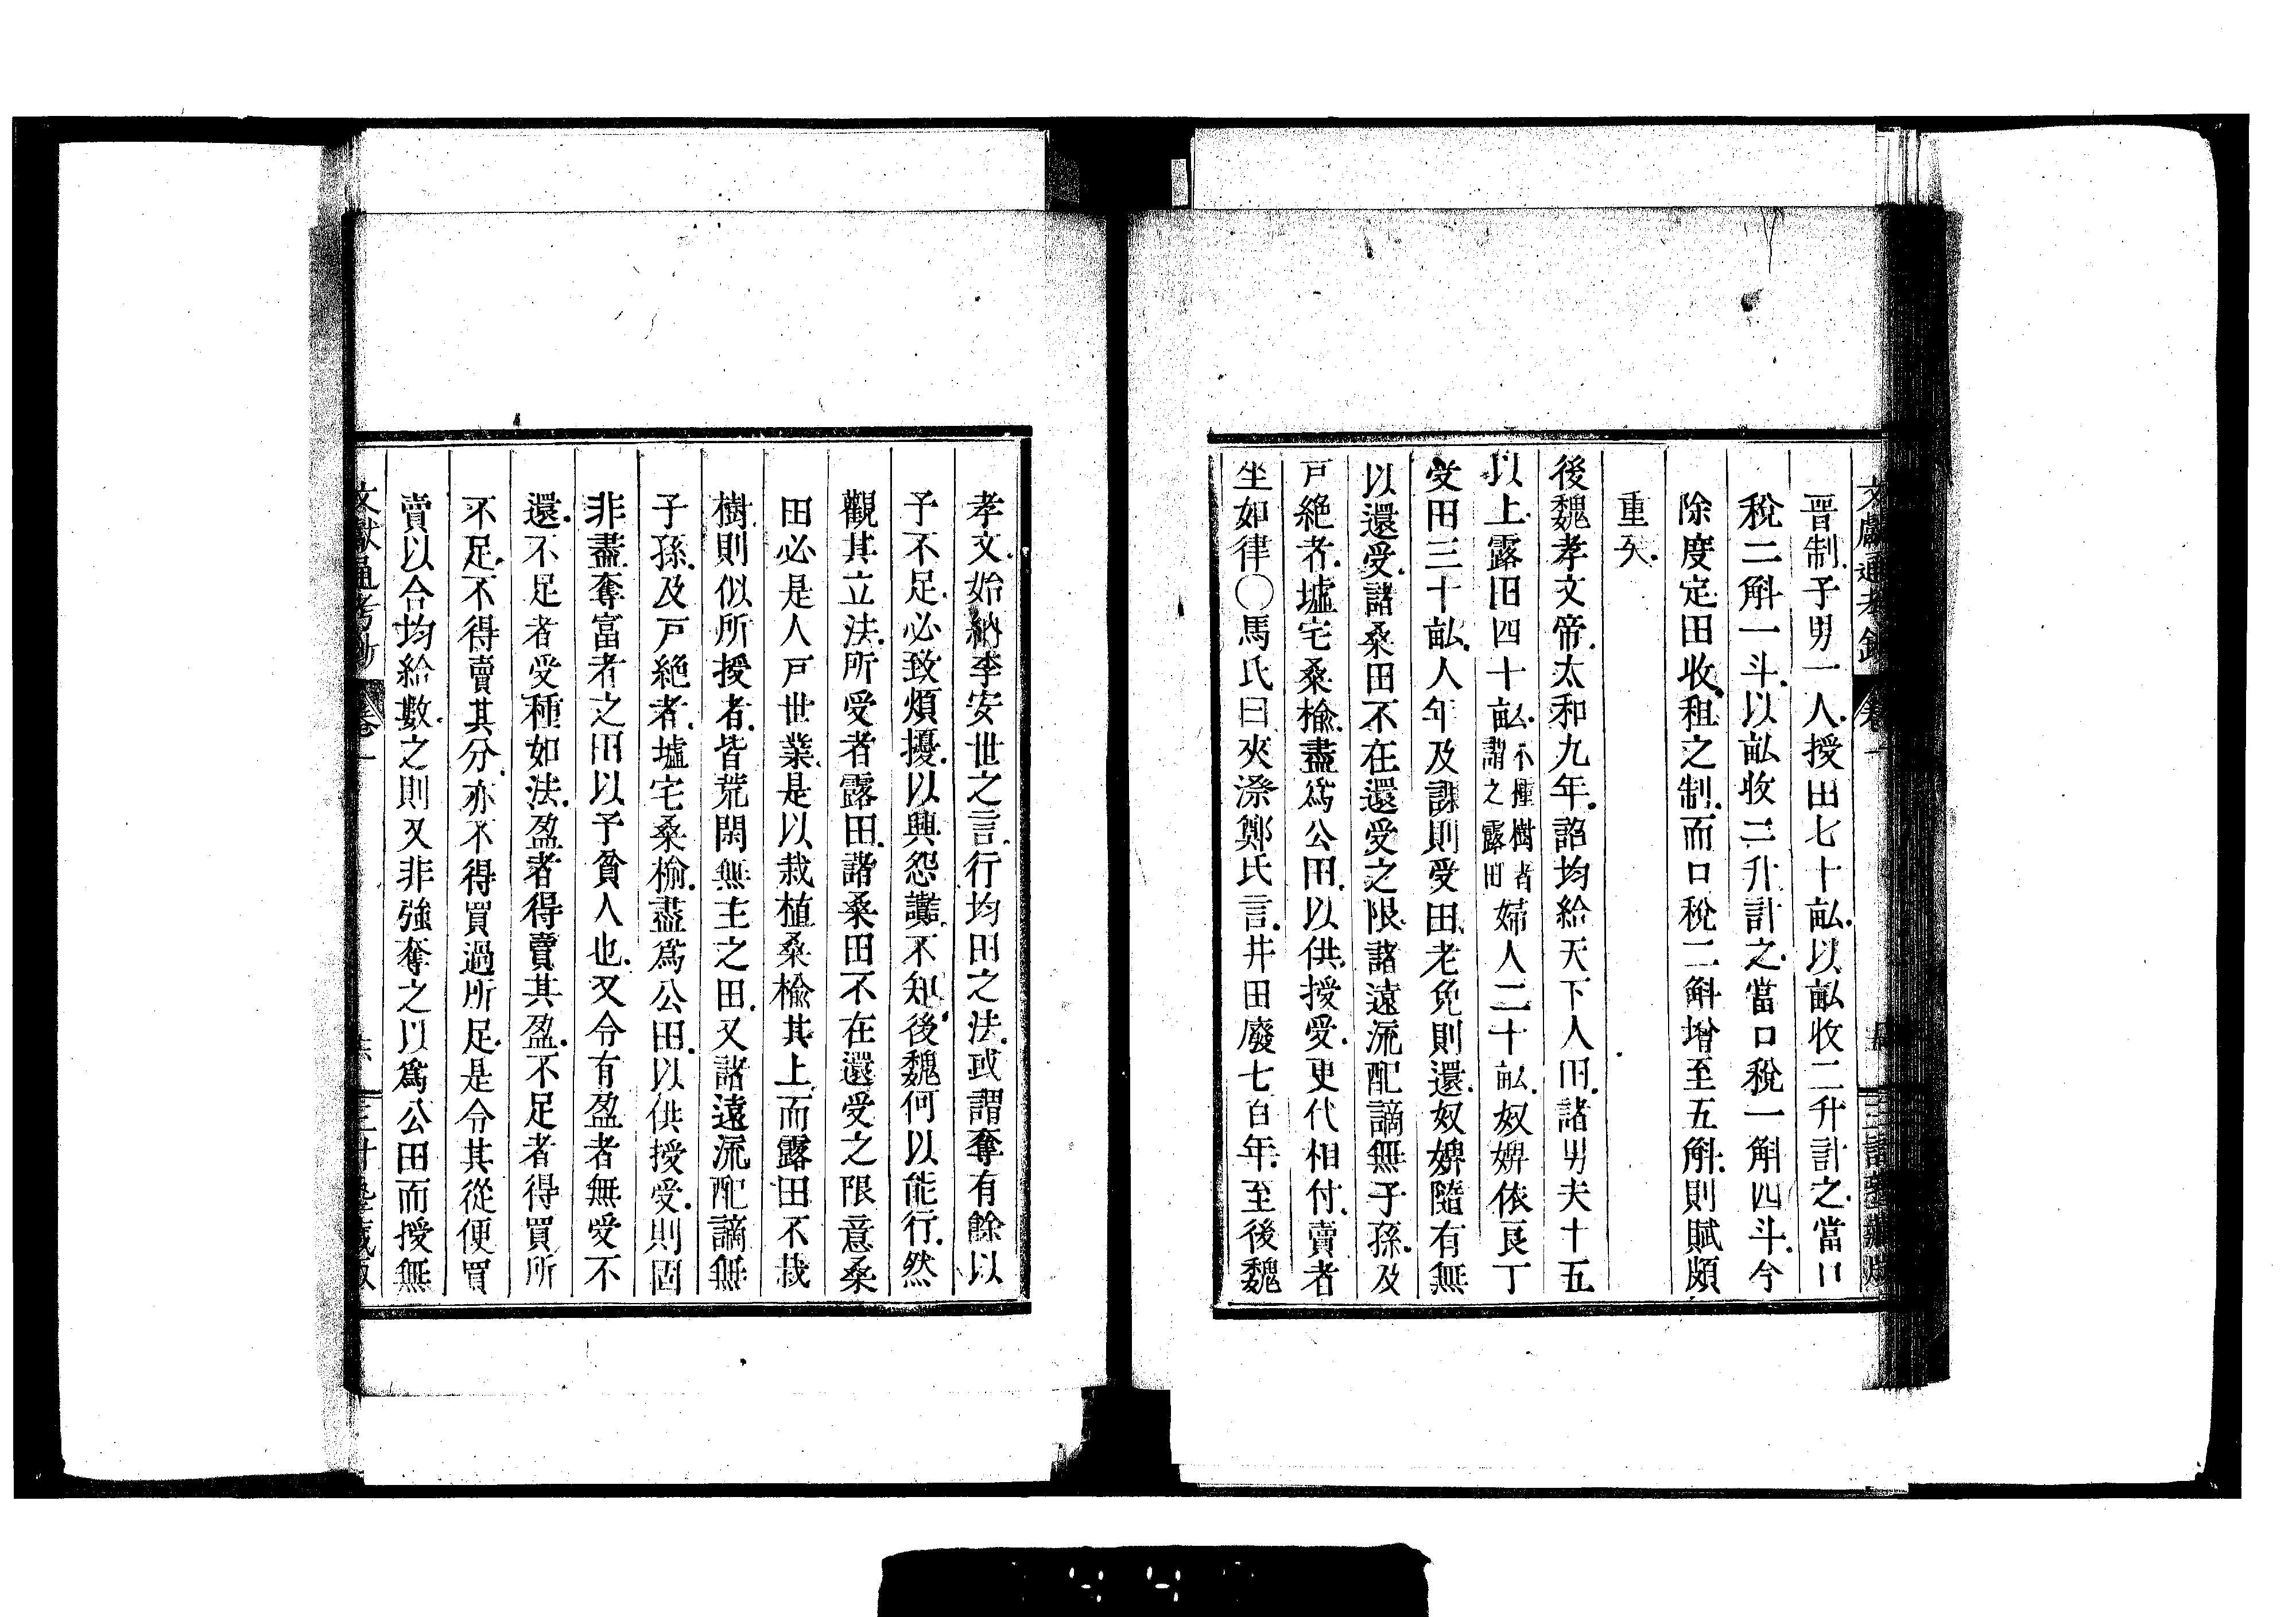 晋制予男一人授田七十畝以畝收二升計之當口
稅二斛一斗以畝收二升計之當口稅一斛四斗今
除度定田收租之制而口稅二斛增至五斛則賦頗
重矣
後魏孝文帝太和九年詔均給天下人田諸男夫十五
以上露田四十畝不種樹者謂之露田婦人二十畝奴婢依良丁
受田三十畝人年及課則受田老免則還奴婢隨有無
以還受諸桑田不在還受之限諸遠流配謫無子孫及
戸絶者墟宅桑楡盡爲公田以供授受更代相付賣者
坐如律〇馬氏曰夾漈鄭氏言井田廢七百年至後魏
孝文始納李安世之言行均田之法或謂奪有餘以
予不足必致煩擾以興怨讟不知後魏何以能行然
觀其立法所受者露田諸桑田不在還受之限意桑
田必是人戸世業是以栽植桑楡其上而露田不栽
樹則似所授者皆荒閑無主之田又諸遠流配謫無
子孫及戸絶者墟宅桑楡盡爲公田以供授受則固
非盡奪富者之田以予貧人也又令有盈者無受不
還不足者受種如法盈者得賣其盈不足者得買所
不足不得賣其分亦不得買過所足是令其從便買
賣以合均給數之則又非強奪之以爲公田而授無